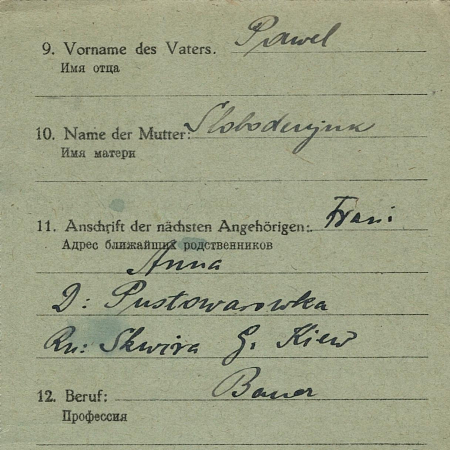 9. Vorname des Vaters. Pawel
Имя отца
10. Name der Mutter: Slobodenjuk
Имя матери
11. Anschrift der nächsten Angehörigen: Frau:
Адрес ближайших родственников
Anna
D: Pustowarowka
Rn: Skwira G. Kiew
12. Beruf: Bauer
Профессия